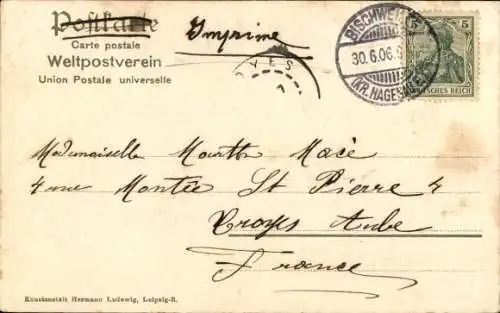 Postkarte
Carte postale
Weltpostverein
Union Postale universelle
Imprimé
BISCHWEI
30.6.06.
(KR. HAGENAU)
5
DEUTSCHES REICH
OYES
Mademoiselle Marthe Macé
4 rue Montée St Pierre 4
Troyes Aube
France
Kunstanstalt Hermann Ludewig, Leipzig-R.